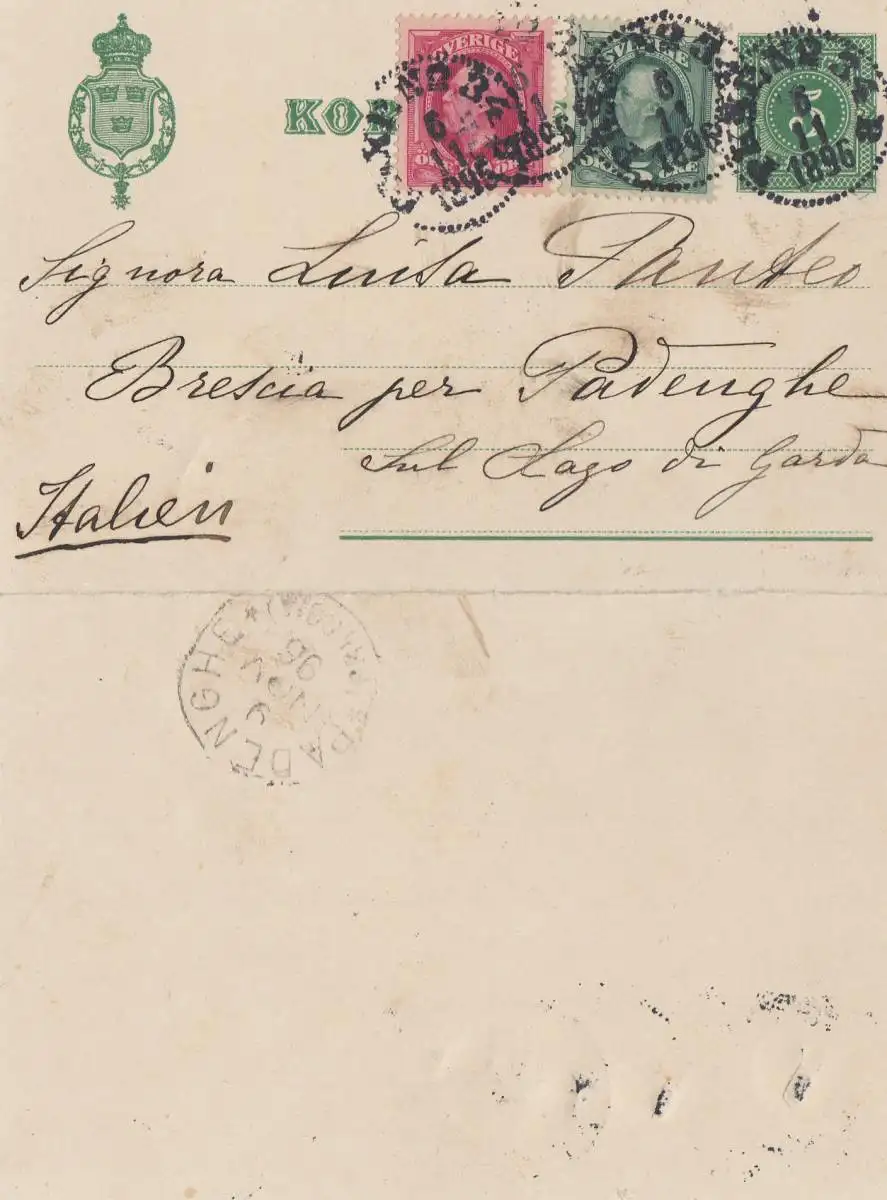 SVERIGE SVERIGE
5
6
11
1896
6
11
1896
6
11
1896
1896
Signora Luisa Panteo
Brescia per Padenghe
Sul Lago di Garda
Italien
PADENGHE
96